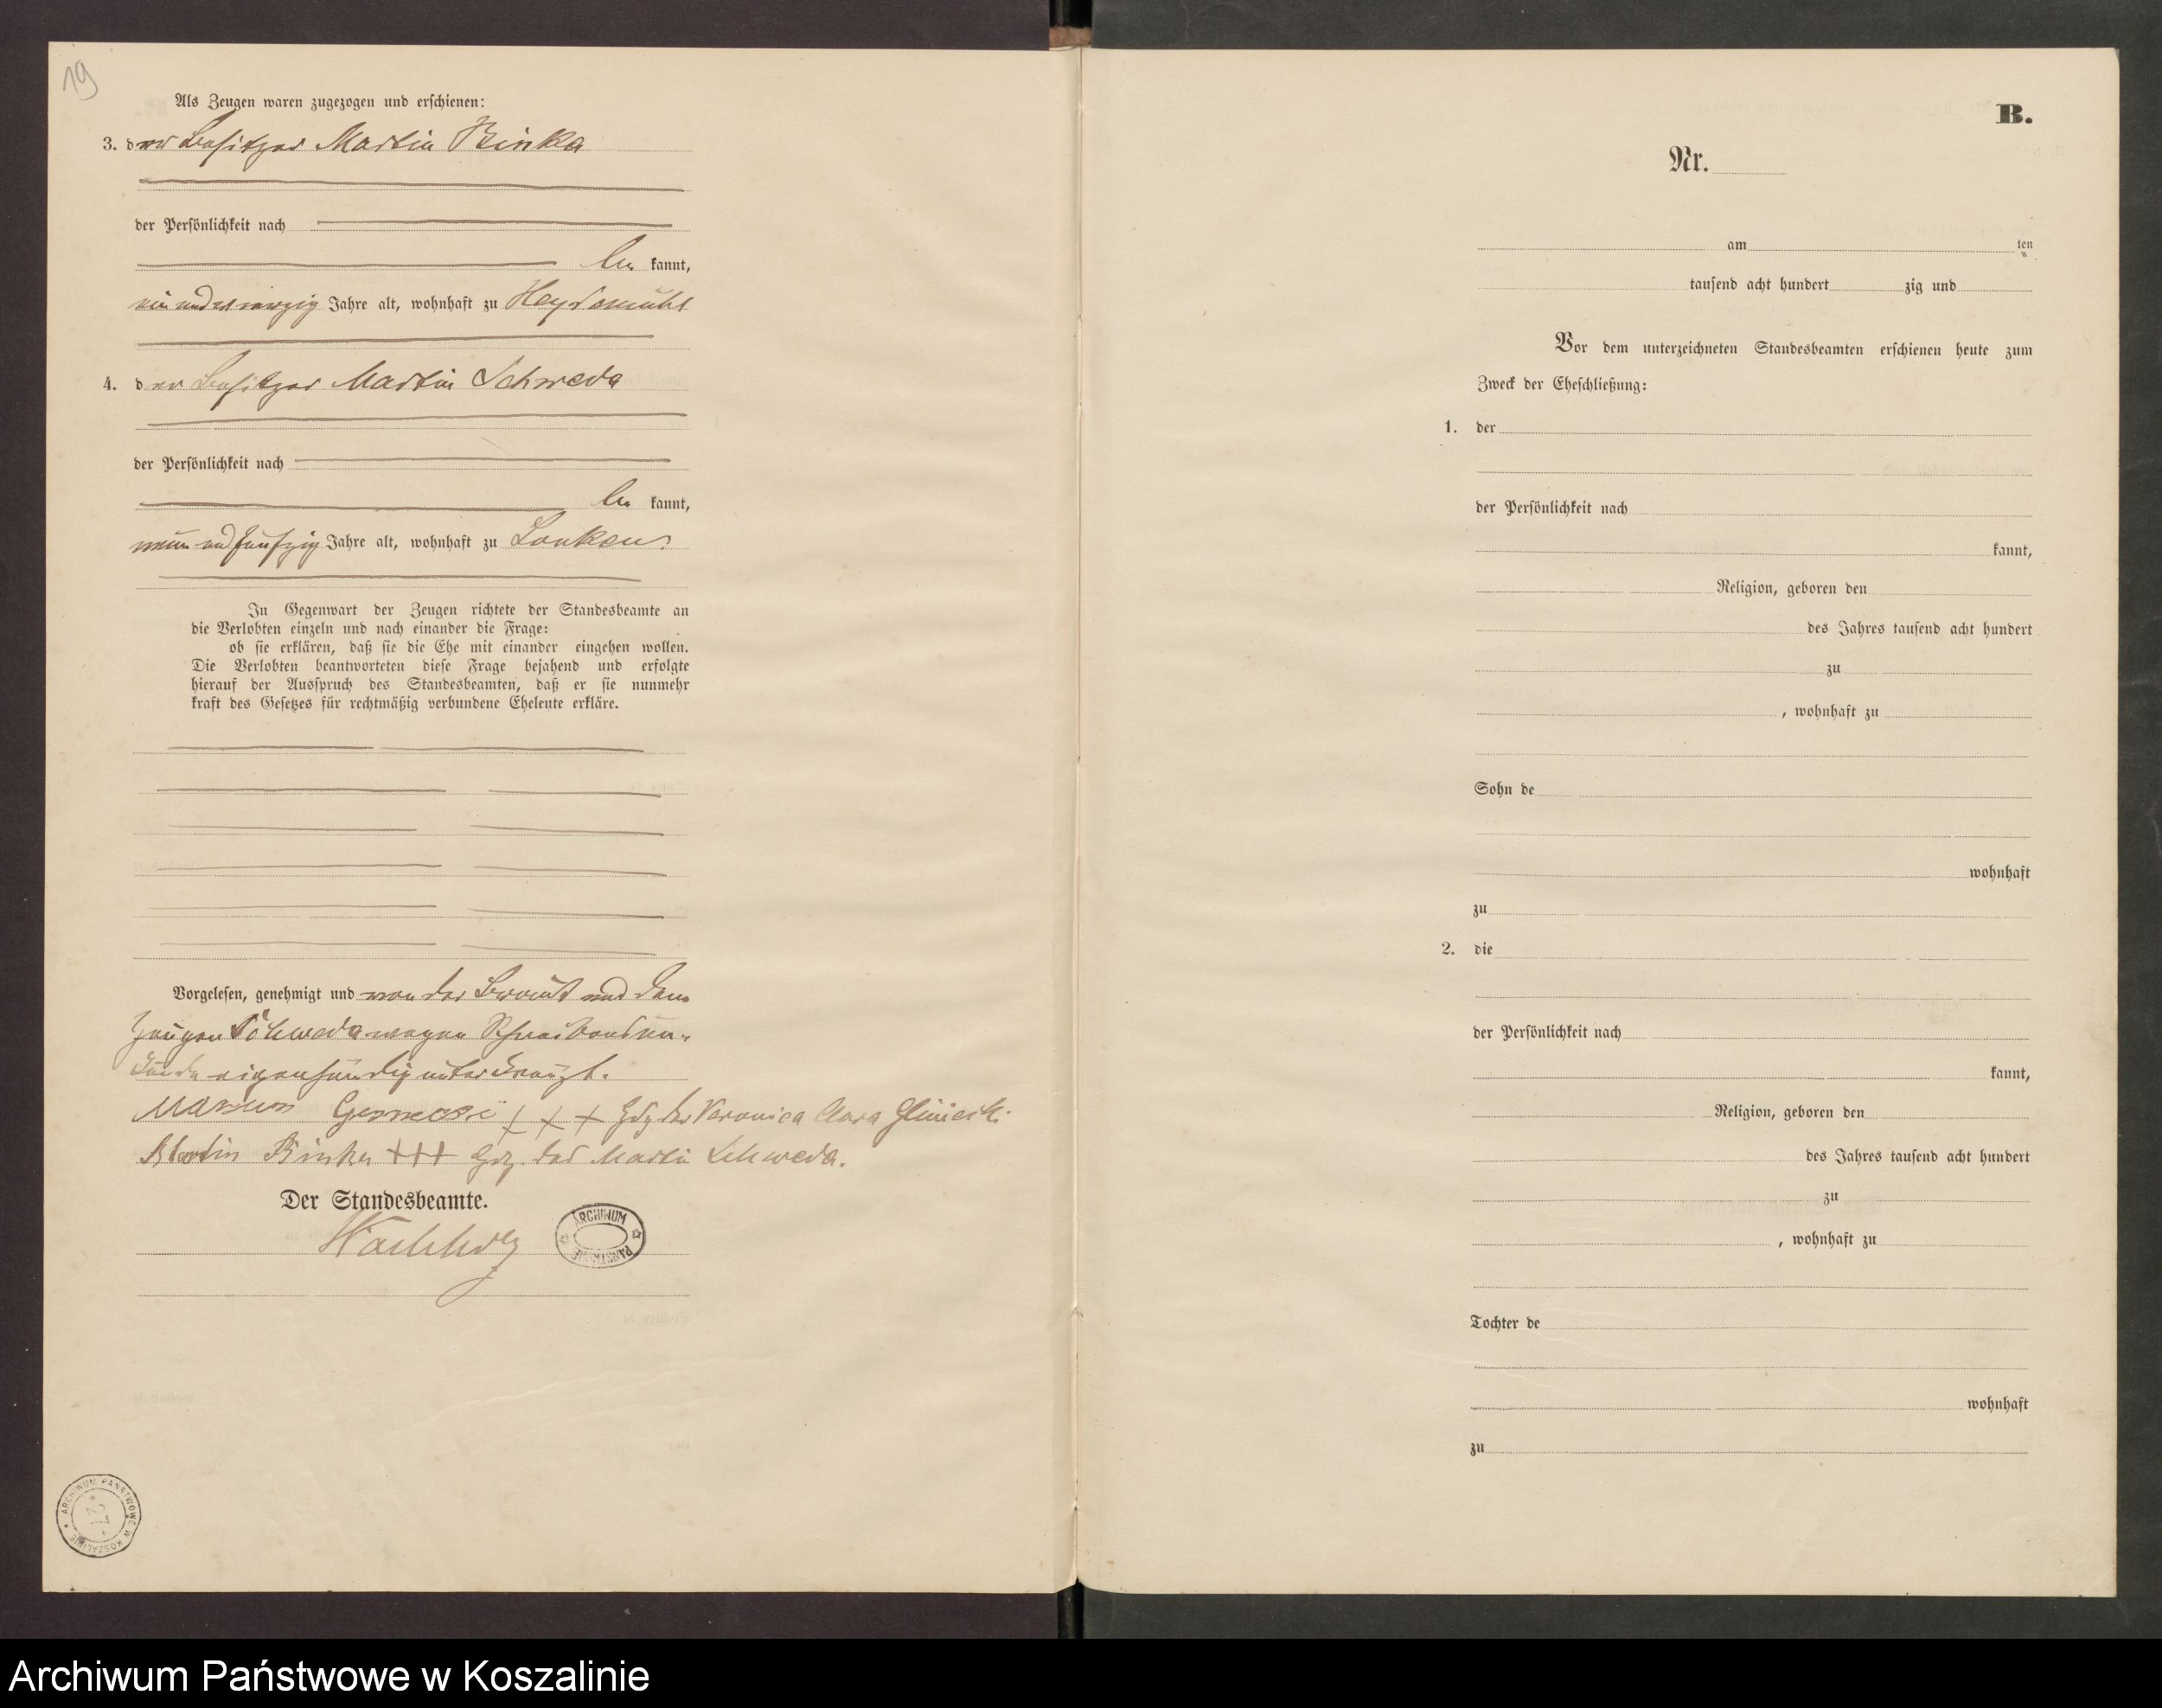 19
Als Zeugen waren zugezogen und erschienen:
3. der Besitzer Martin Binka
der Persönlichkeit nach
be kannt,
ein und zwanzig Jahre alt, wohnhaft zu Heydemühl
4. der Besitzer Martin Schweda
der Persönlichkeit nach
be kannt,
neun und fünfzig Jahre alt, wohnhaft zu Lonken.
In Gegenwart der Zeugen richtete der Standesbeamte an
die Verlobten einzeln und nach einander die Frage:
ob sie erklären, daß sie die Ehe mit einander eingehen wollen.
Die Verlobten beantworteten diese Frage bejahend und erfolgte
hierauf der Ausspruch des Standesbeamten, daß er sie nunmehr
kraft des Gesetzes für rechtmäßig verbundene Eheleute erkläre.
Vorgelesen, genehmigt und von der Braut und dem
Zeugen Schweda wegen Schreibensun-
kunde eigenhändig unterkreuzt.
+ + + Hdz. der Veronica Clara
Martin Binka +++ Hdz. des Martin Schweda.
Der Standesbeamte.
ARCHIWUM PAŃSTWOWE
ARCHIWUM PAŃSTWOWE W KOSZALINIE
B.
Nr.
am ten
tausend acht hundert zig und
Vor dem unterzeichneten Standesbeamten erschienen heute zum
Zweck der Eheschließung:
1. der
der Persönlichkeit nach
kannt,
Religion, geboren den
des Jahres tausend acht hundert
zu
, wohnhaft zu
Sohn de
wohnhaft
zu
2. die
der Persönlichkeit nach
kannt,
Religion, geboren den
des Jahres tausend acht hundert
zu
, wohnhaft zu
Tochter de
wohnhaft
zu
Archiwum Państwowe w Koszalinie